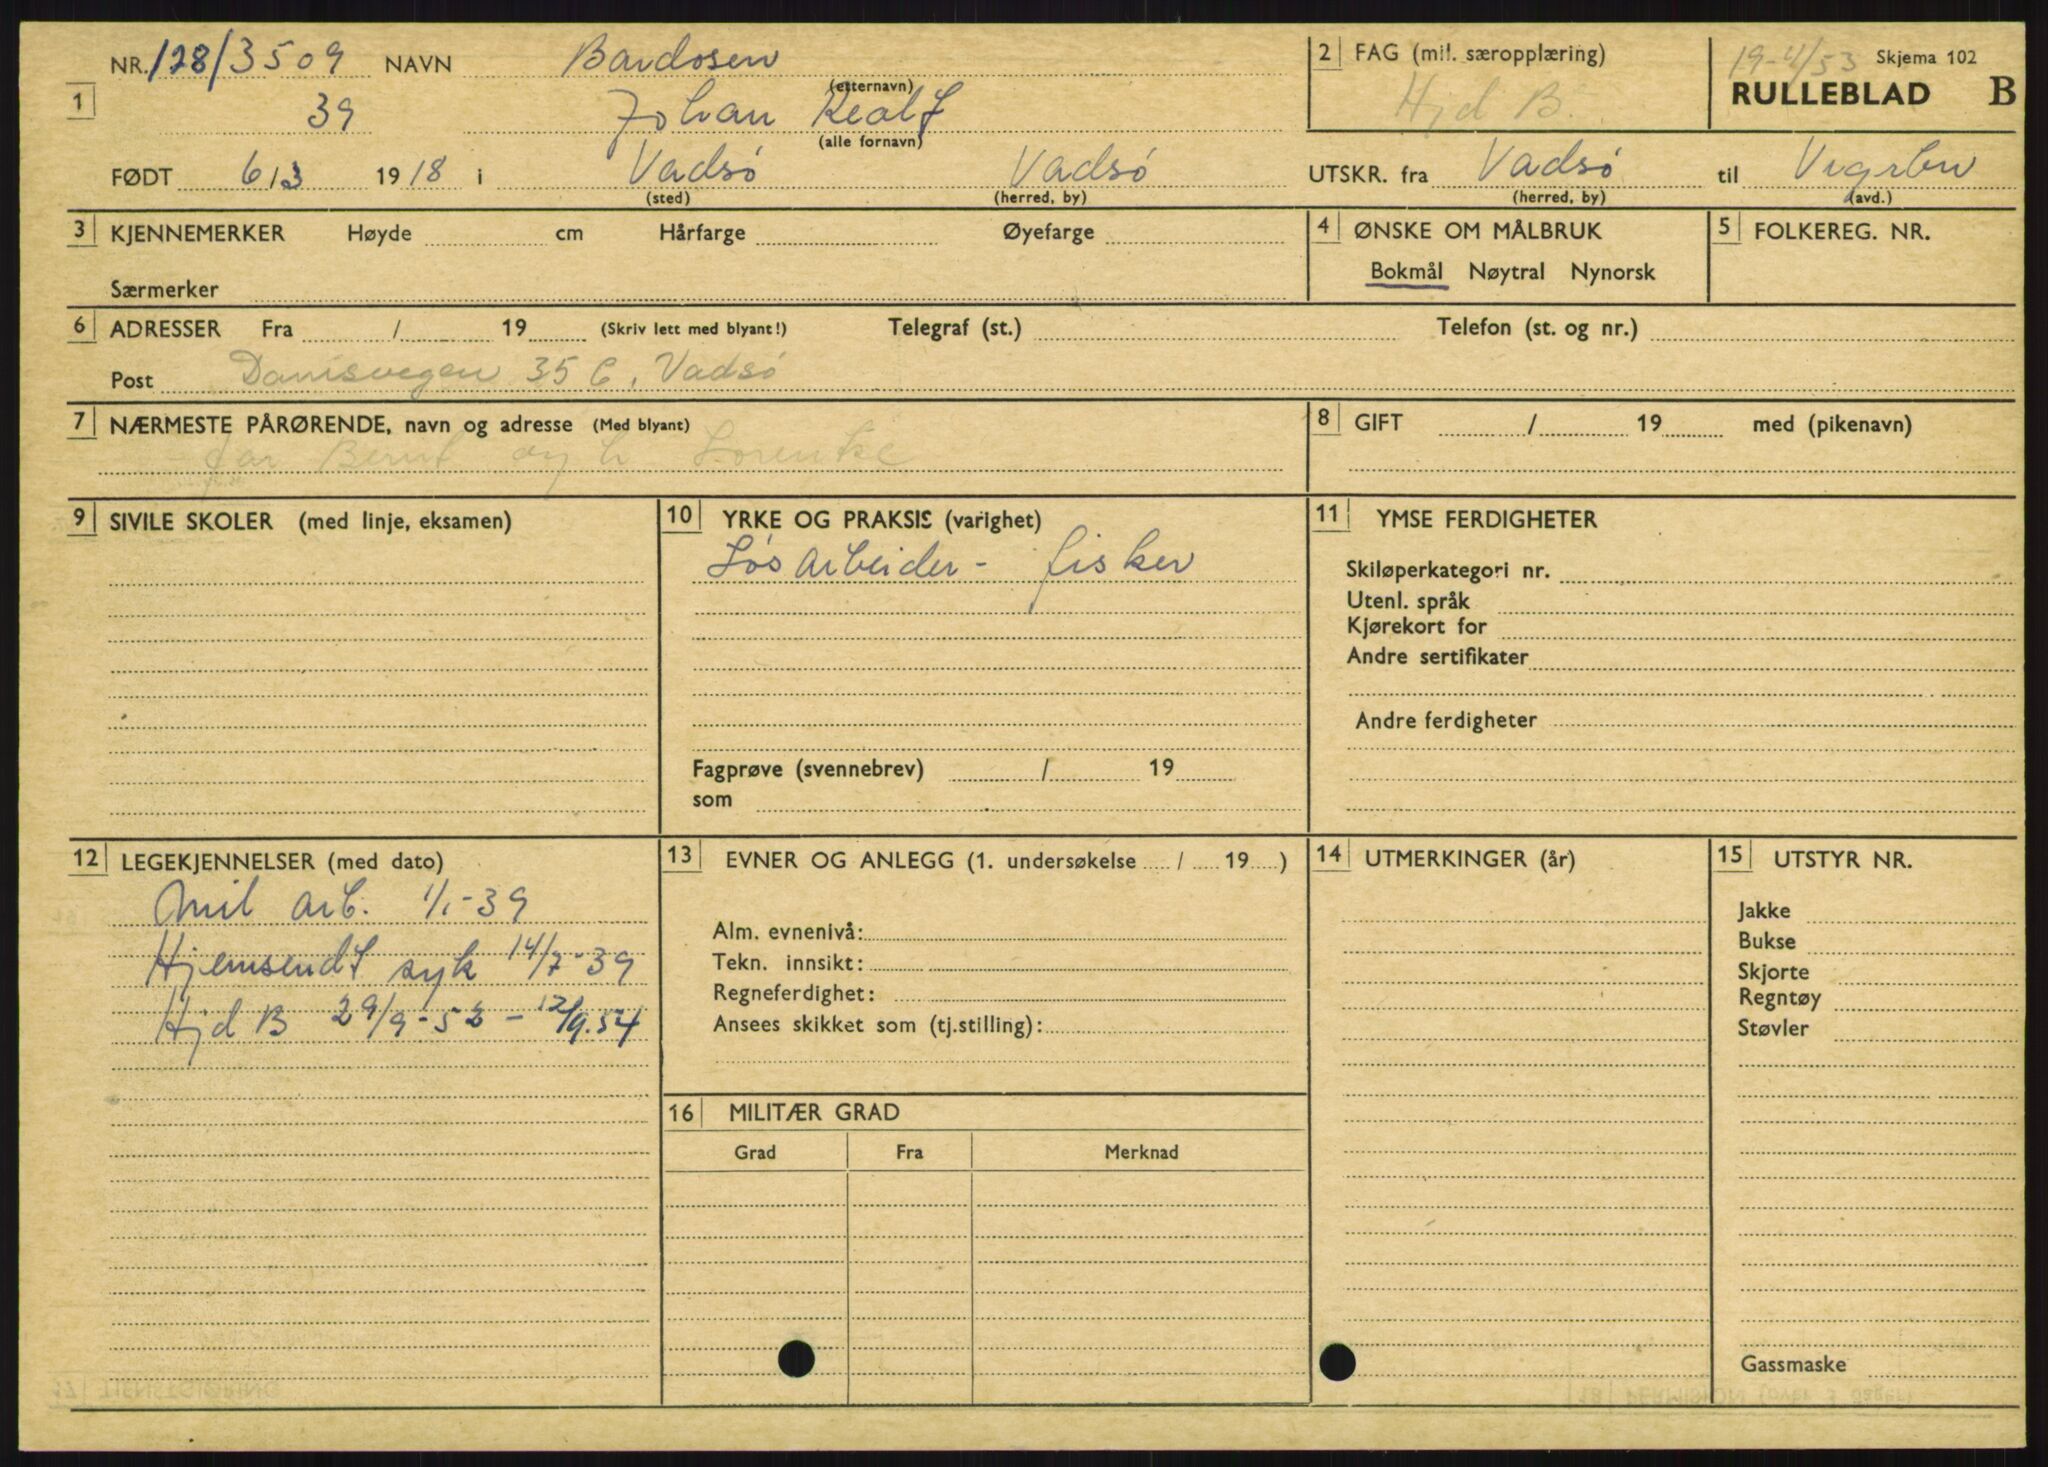 NR. 128/3509 NAVN Bardosen
(etternavn)
1 39 Johan Realf
(alle fornavn)
2 FAG (mil. særopplæring)
Hjd B.
19-4/53 Skjema 102
RULLEBLAD B
FØDT 6/3 1918 i Vadsø Vadsø
(sted) (herred, by)
UTSKR. fra Vadsø til
(herred, by) (avd.)
3 KJENNEMERKER Høyde cm Hårfarge Øyefarge
Særmerker
4 ØNSKE OM MÅLBRUK
Bokmål Nøytral Nynorsk
5 FOLKEREG. NR.
6 ADRESSER Fra / 19 (Skriv lett med blyant!) Telegraf (st.) Telefon (st. og nr.)
Post Damsvegen 35 C, Vadsø
7 NÆRMESTE PÅRØRENDE, navn og adresse (Med blyant)
far Bernt
8 GIFT / 19 med (pikenavn)
9 SIVILE SKOLER (med linje, eksamen)
10 YRKE OG PRAKSIS (varighet)
Løsarbeider - fisker
Fagprøve (svennebrev) / 19
som
11 YMSE FERDIGHETER
Skiløperkategori nr.
Utenl. språk
Kjørekort for
Andre sertifikater
Andre ferdigheter
12 LEGEKJENNELSER (med dato)
Mil arb. 1/1-39
Hjemsendt syk 14/7-39
Hjd B 29/9-52 - 12/9.54
13 EVNER OG ANLEGG (1. undersøkelse / 19 )
Alm. evnenivå:
Tekn. innsikt:
Regneferdighet:
Ansees skikket som (tj.stilling):
14 UTMERKINGER (år)
15 UTSTYR NR.
Jakke
Bukse
Skjorte
Regntøy
Støvler
Gassmaske
16 MILITÆR GRAD
Grad Fra Merknad